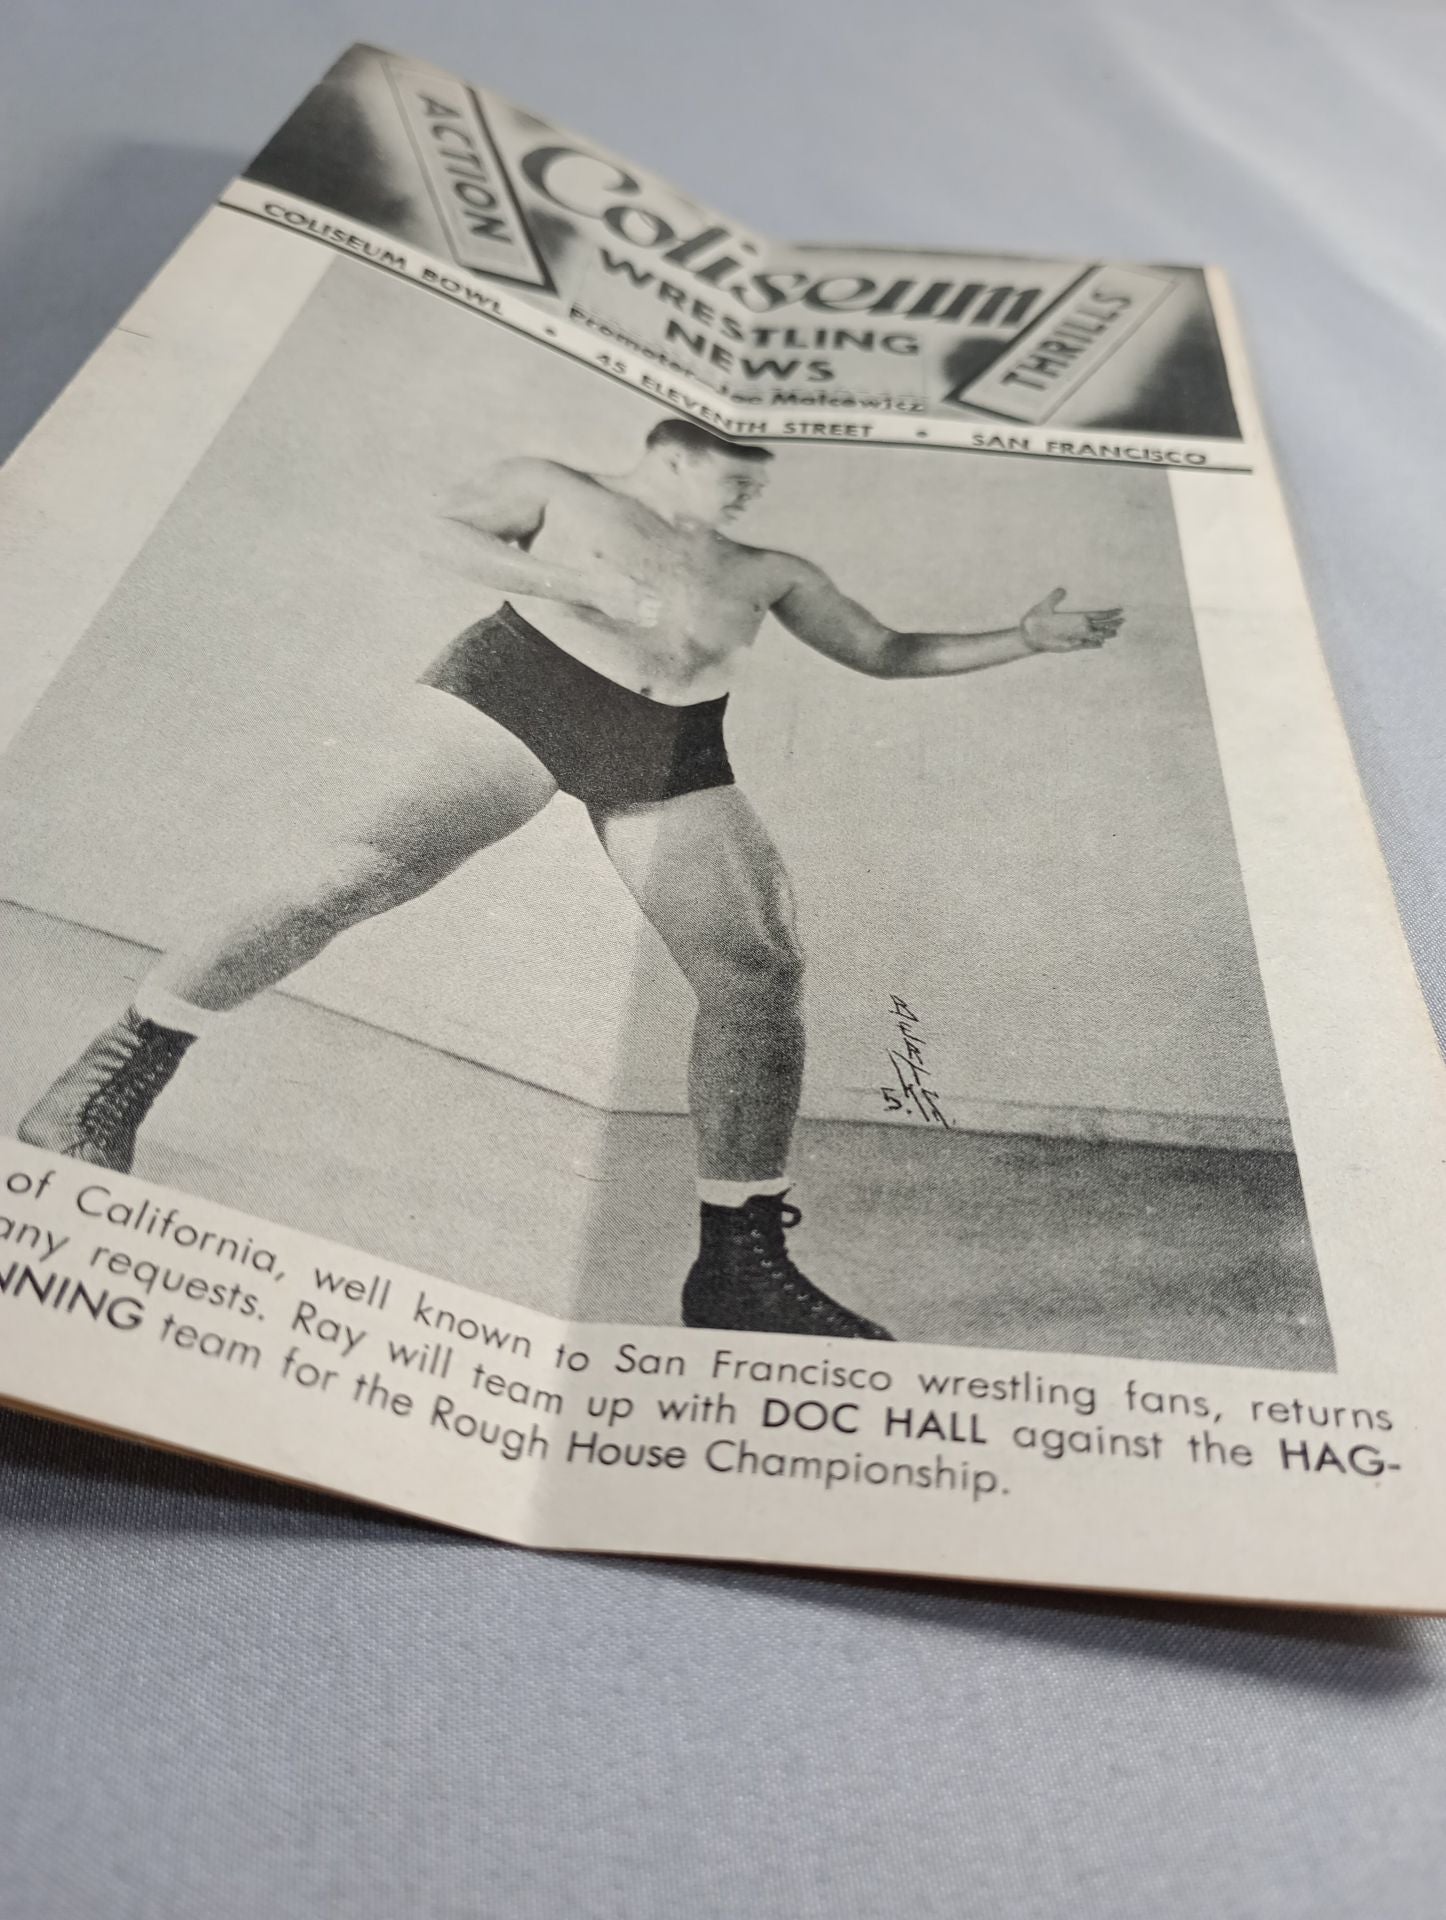 ACTION
Coliseum
WRESTLING
NEWS
Promoter Joe Malcewicz
THRILLS
COLISEUM BOWL • 45 ELEVENTH STREET • SAN FRANCISCO
of California, well known to San Francisco wrestling fans, returns
any requests. Ray will team up with DOC HALL against the HAG-
NNING team for the Rough House Championship.